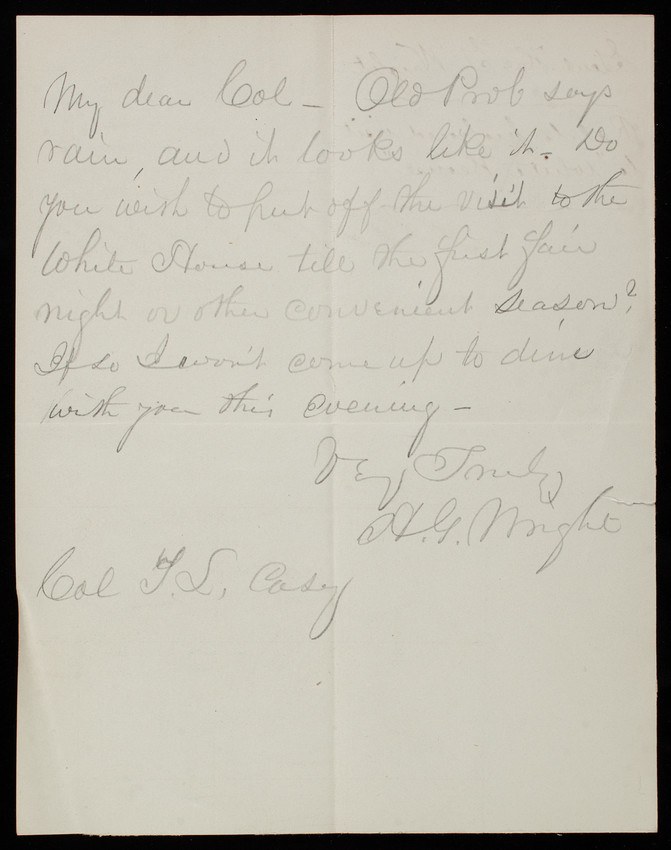 My dear Col — Old Prob says
rain, and it looks like it — Do
you wish to put off the visit to the
White House till the first fair
night or other convenient season?
If so I won't come up to dine
with you this evening —
Very Truly
H.G. Wright
Col T.L. Casey